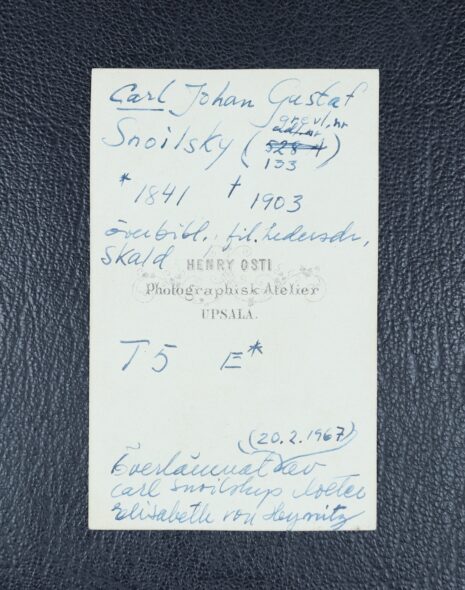 Carl Johan Gustaf
Snoilsky (grevl. nr
133)
* 1841 † 1903
överbibl., fil. hedersdr,
Skald
HENRY OSTI
Photographisk Atelier
UPSALA.
T5 E*
(20.2.1967)
Överlämnat av
Carl Snoilskys dotter
Elisabeth von Heynitz